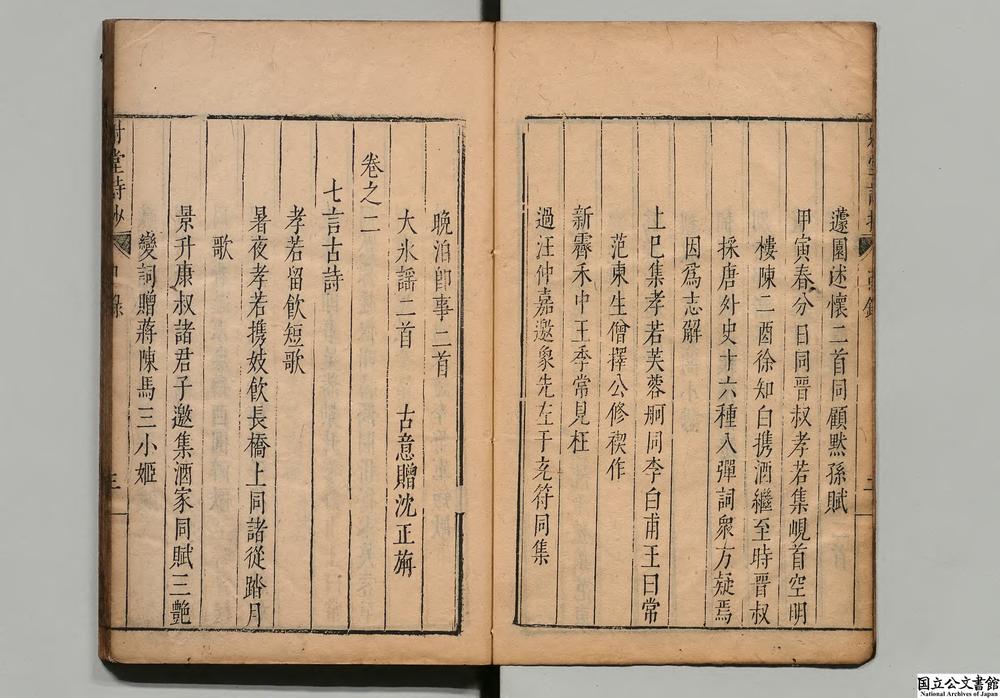 蘧園述懷二首同顧默孫賦
甲寅春分日同晉叔孝若集峴首空明
樓陳二酉徐知白携酒繼至時晉叔
採唐外史十六種入彈詞衆方疑焉
因爲志解
上巳集孝若芙蓉舸同李白甫王曰常
范東生僧擇公修禊作
新霽禾中王季常見枉
過汪仲嘉邀象先左于充符同集
晚泊卽事二首
大氷謠二首　古意贈沈正
卷之二
七言古詩
孝若留飲短歌
暑夜孝若携妓飲長橋上同諸從踏月
歌
景升康叔諸君子邀集酒家同賦三艶
變詞贈蔣陳馬三小姬
堂詩抄
目錄
三
国立公文書館
National Archives of Japan